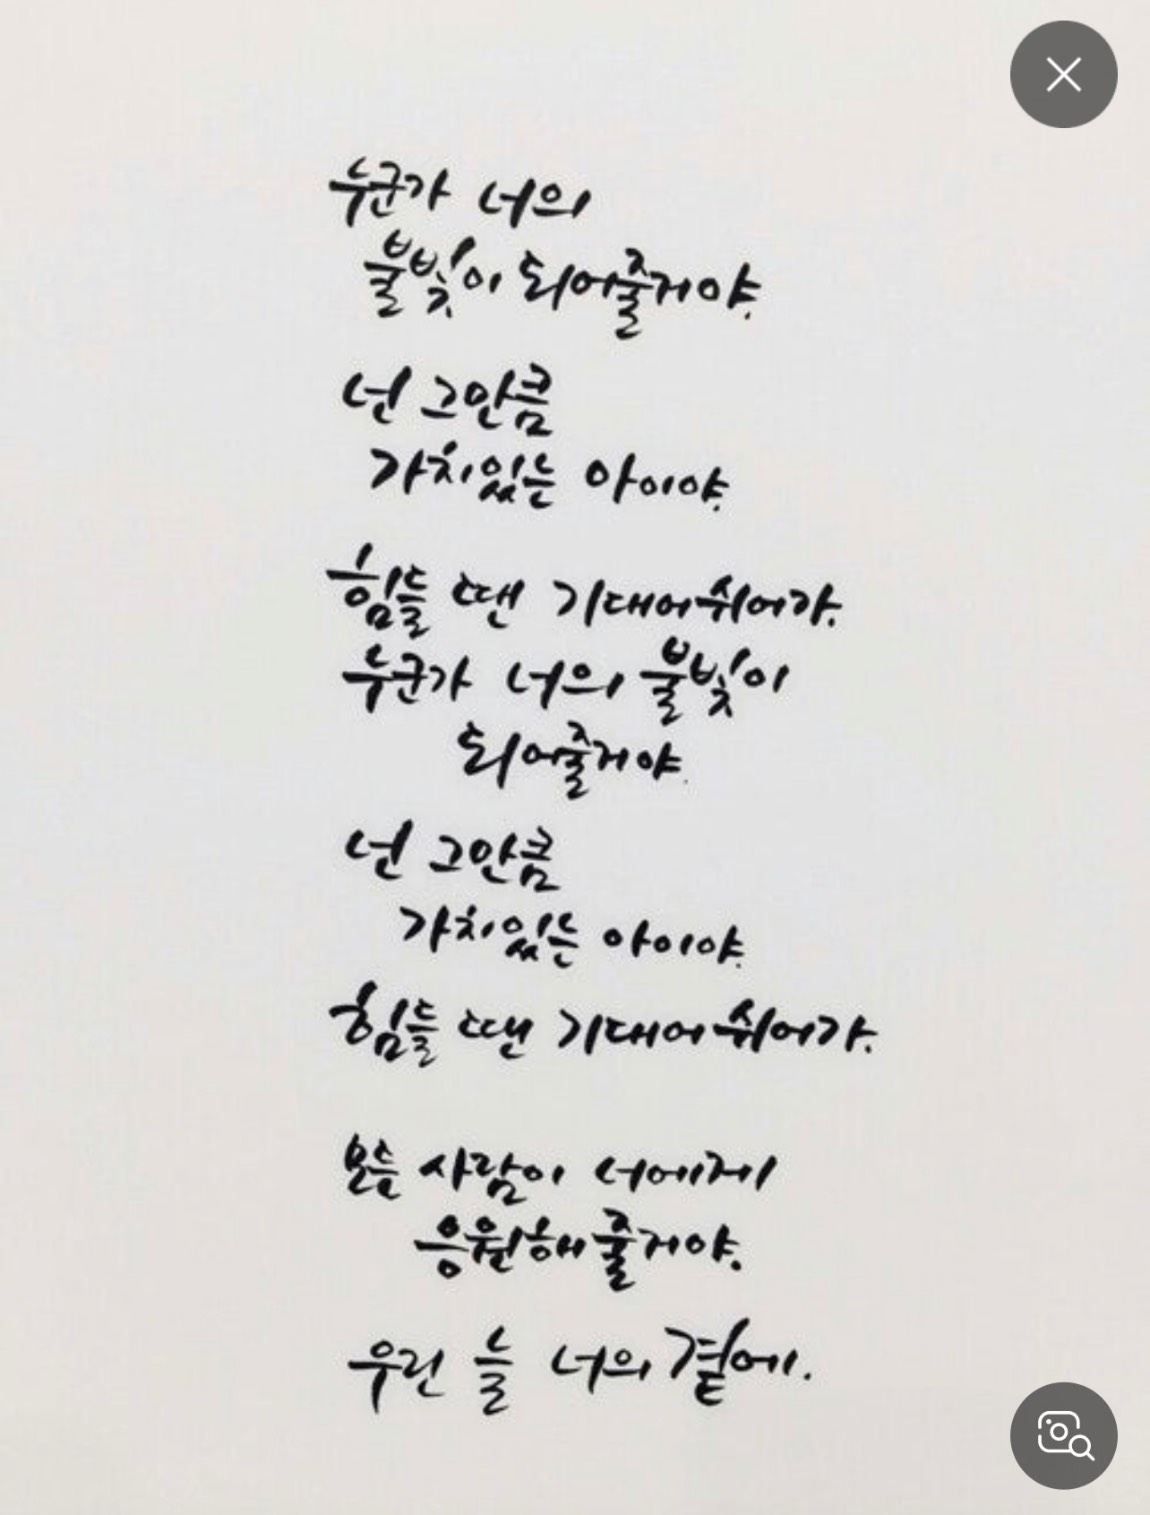 누군가 너의
불빛이 되어줄거야.
넌 그만큼
가치있는 아이야.
힘들 땐 기대어쉬어가.
누군가 너의 불빛이
되어줄거야.
넌 그만큼
가치있는 아이야.
힘들 땐 기대어쉬어가.
모든 사람이 너에게
응원해줄거야.
우린 늘 너의 곁에.